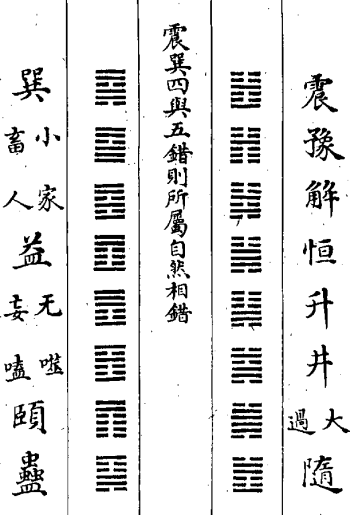 震
豫
解
恒
升
井
大過
隨
震巽四與五錯則所屬自然相錯
巽
小畜
家人
益
无妄
噬嗑
頤
蠱